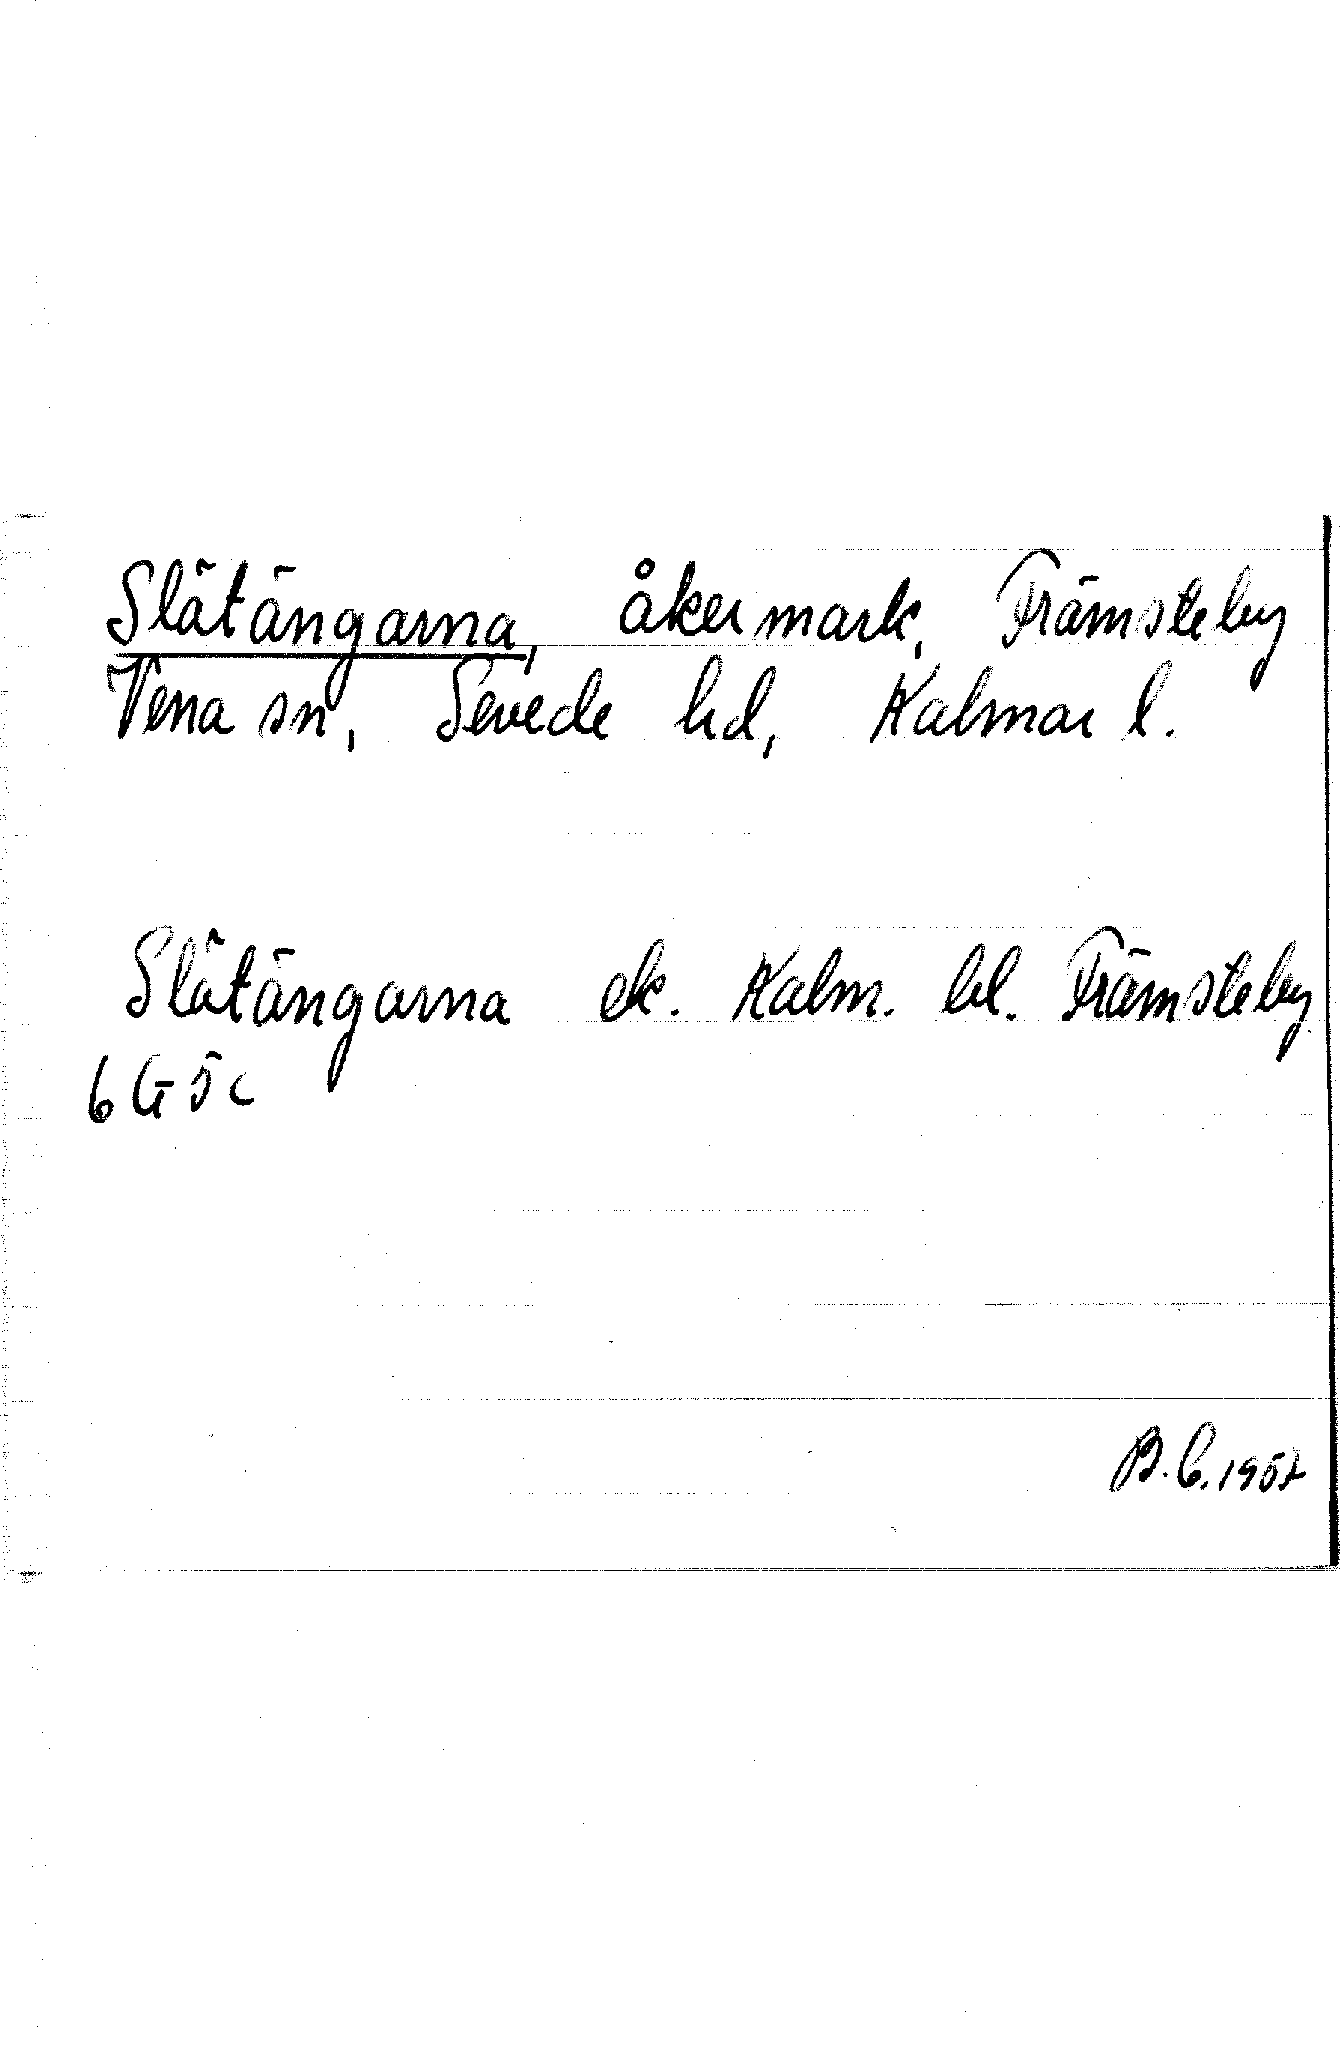 Slätängarna, åkermark, Främsteby
Vena sn, Sevede hd, Kalmar l.
Slätängarna ek. Kalm. bl. Främsteby
6 G 5 c
B.C. 1957